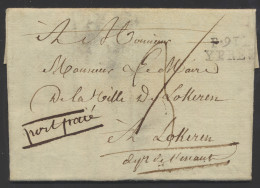 A Monsieur
Monsieur Le Maire
De la Ville De Lokeren
port paié
A Lokeren
dept de l'escaut